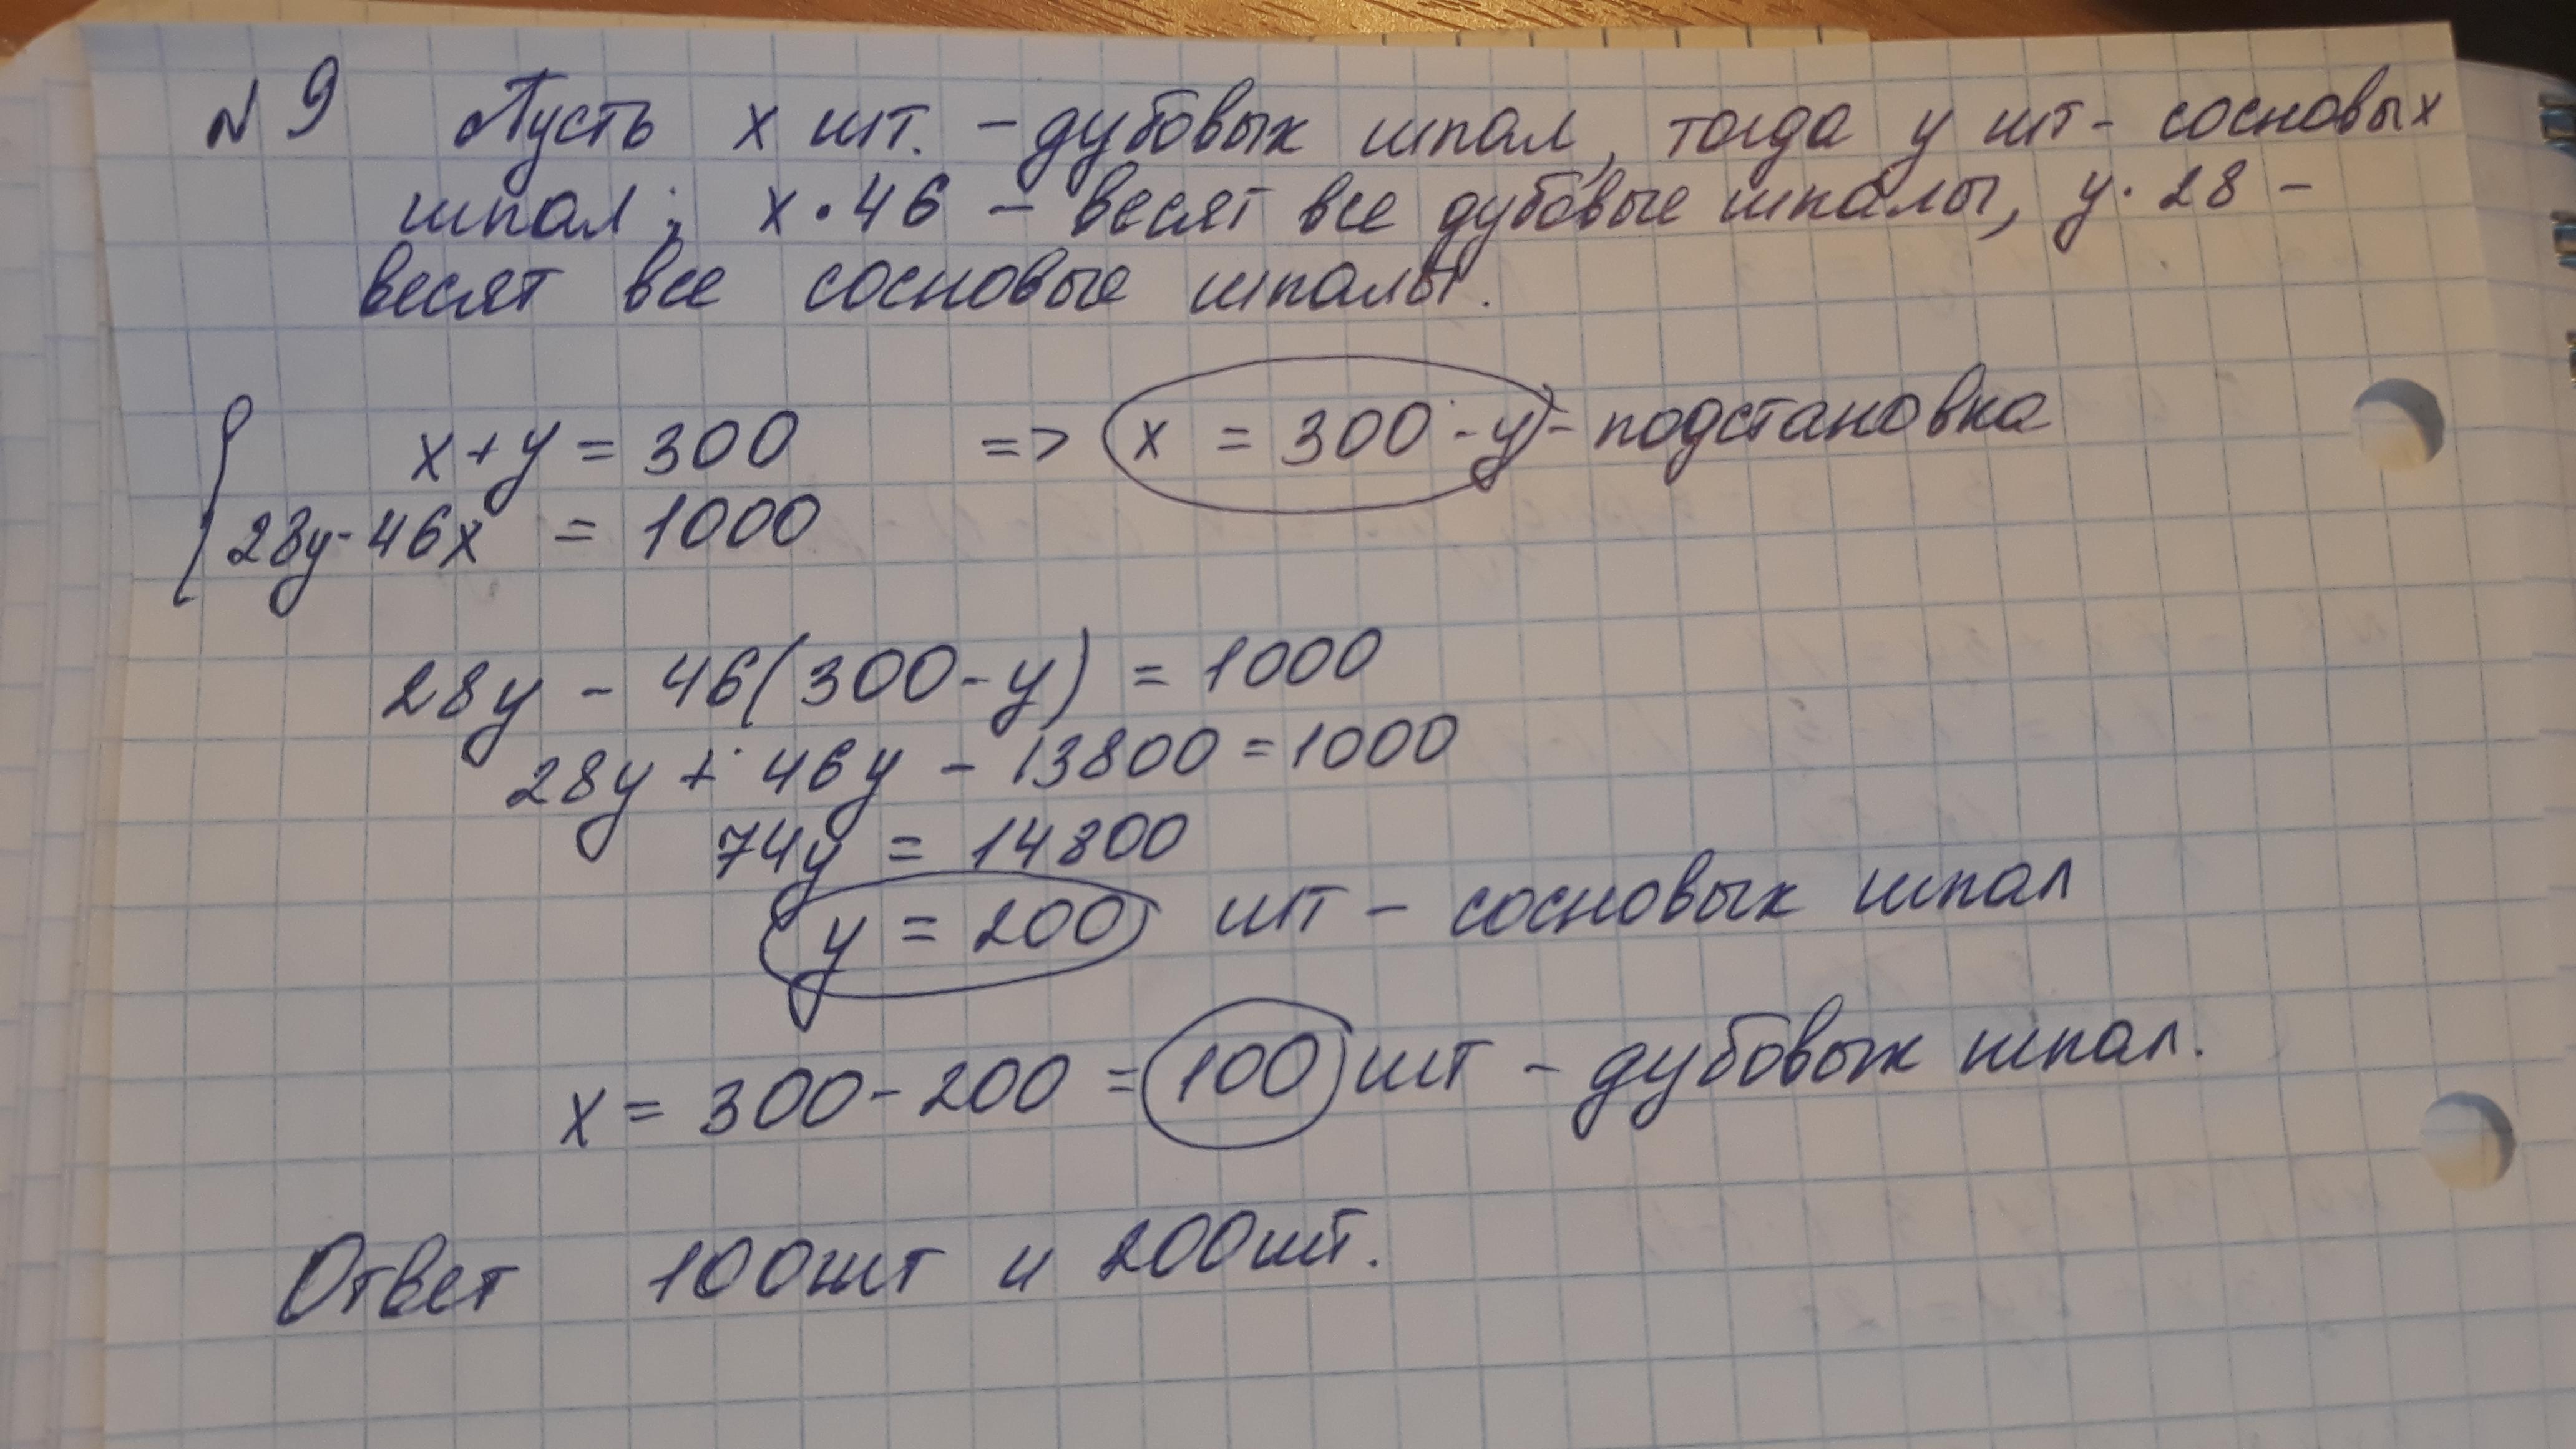 № 9 Пусть х шт. - дубовых шпал, тогда у шт - сосновых
шпал; х · 46 - весят все дубовые шпалы, у · 28 -
весят все сосновые шпалы.
х + у = 300 => х = 300 - у - подстановка
28у - 46х = 1000
28у - 46(300 - у) = 1000
28у + 46у - 13800 = 1000
74у = 14800
у = 200 шт - сосновых шпал
х = 300 - 200 = 100 шт - дубовых шпал.
Ответ 100шт и 200шт.